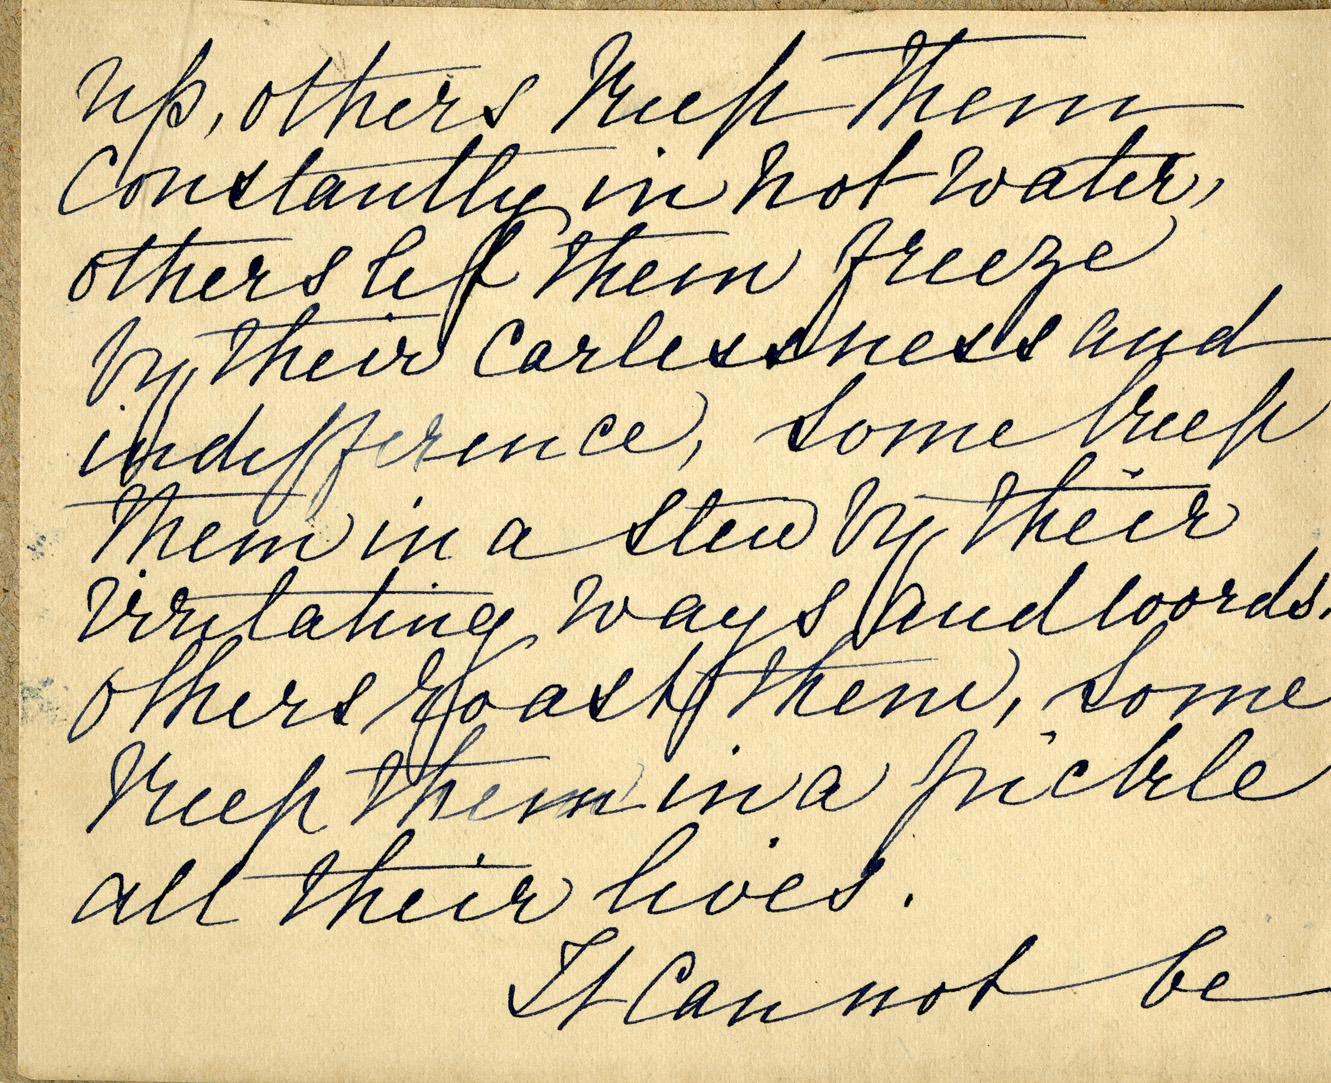 up, others keep them
constantly in hot water,
others let them freeze
by their carlessness and
indifference, some keep
them in a stew by their
irritating ways and words.
others roast them, some
keep them in a pickle
all their lives.
It can not be